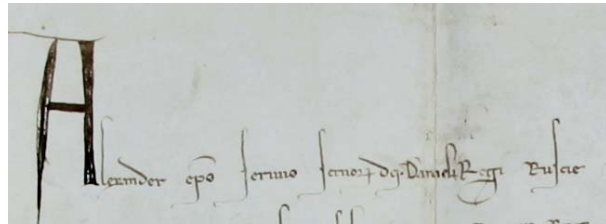 Alexander ep̄o seruuo seruorꝝ dei Danieli Regi Ruscie